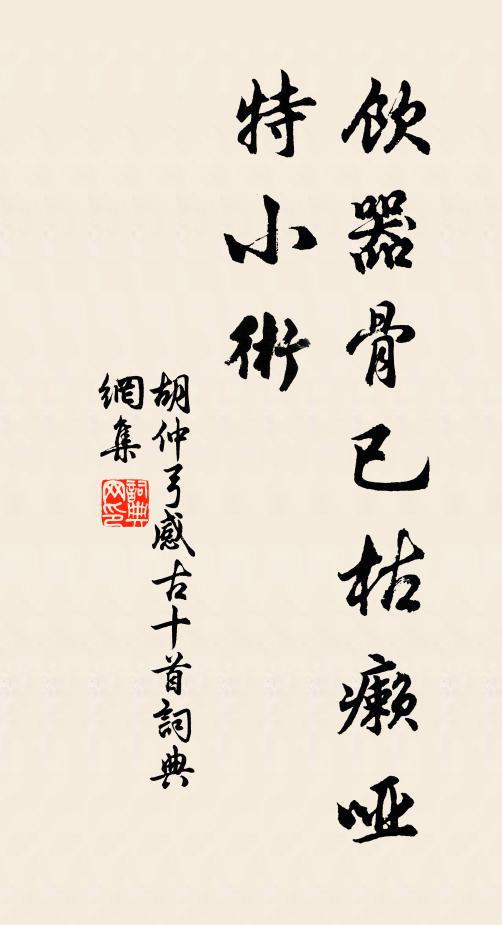 飲器骨已枯癩啞
特小術
胡仲弓感古十首詞典
網集
詞典网印